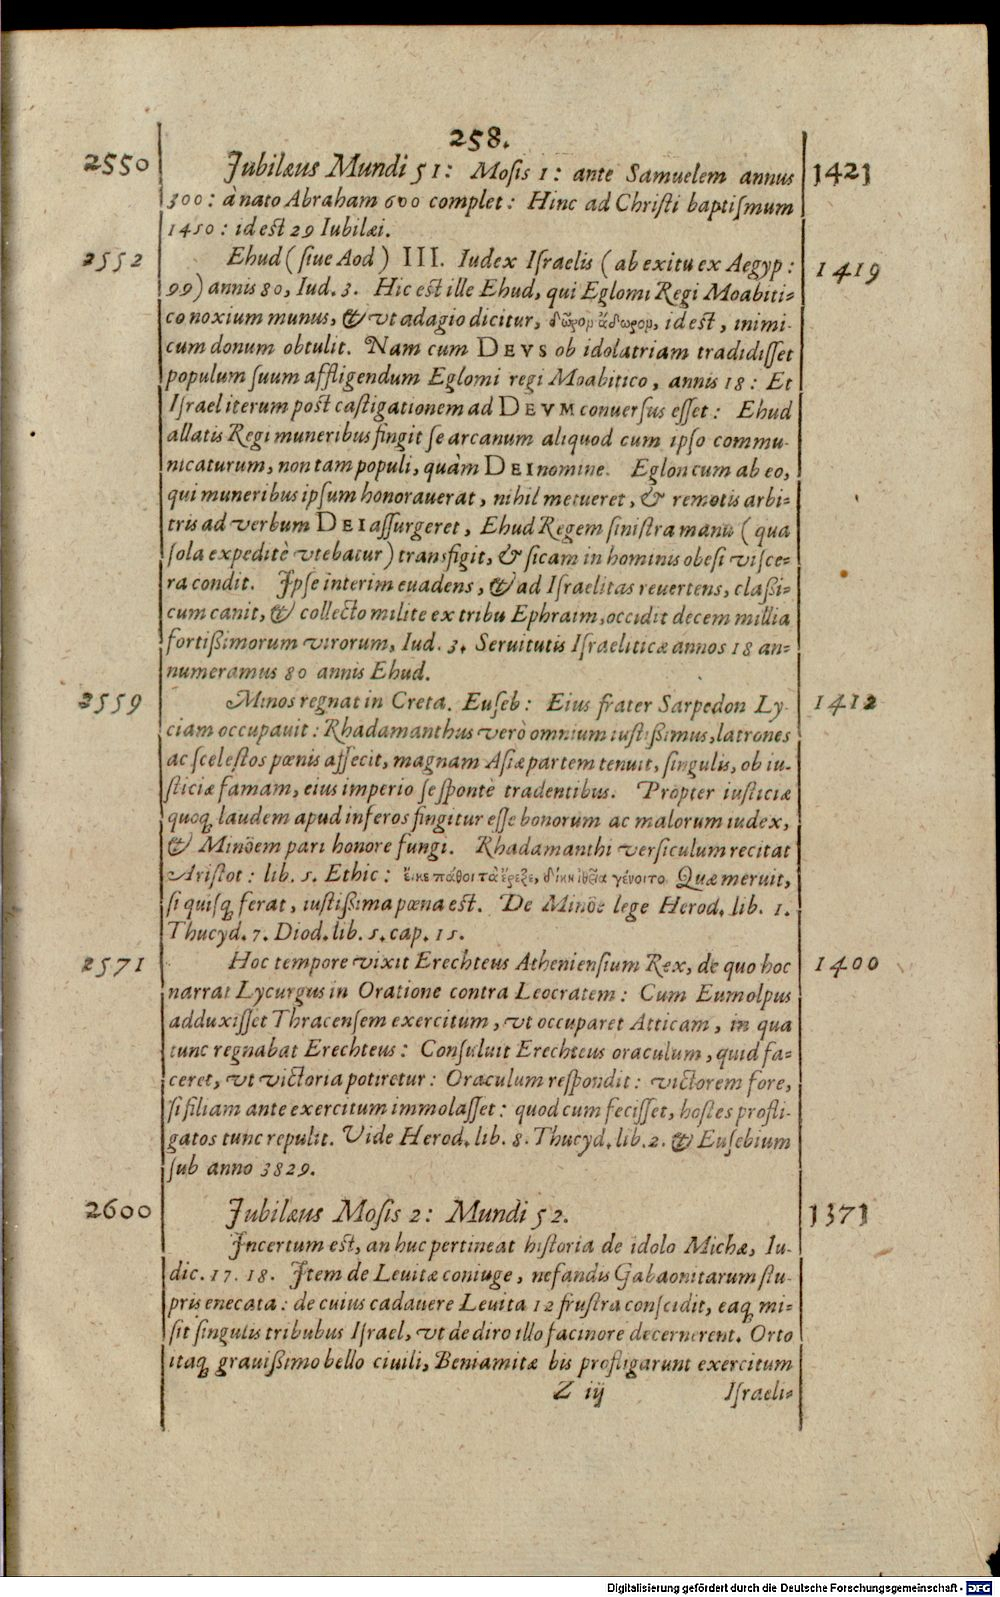 258.
2550 Jubilæus Mundi 51: Mosis 1: ante Samuelem annus 1421
300: à nato Abraham 600 complet: Hinc ad Christi baptiſmum
1450: id eſt 29 Iubilæi.
2552 Ehud (ſiue Aod) III. Iudex Iſraelis (ab exitu ex Aegyp: 1419
99) annis 80, Iud. 3. Hic eſt ille Ehud, qui Eglomi Regi Moabiti-
co noxium munus, & vt adagio dicitur, δῶρον ἄδωρον, id eſt, inimi-
cum donum obtulit. Nam cum DEVS ob idolatriam tradidiſſet
populum ſuum affligendum Eglomi regi Moabitico, annis 18: Et
Iſrael iterum poſt caſtigationem ad DEVM conuerſus eſſet: Ehud
allatis Regi muneribus fingit ſe arcanum aliquod cum ipſo commu-
nicaturum, non tam populi, quàm DEI nomine. Eglon cum ab eo,
qui muneribus ipſum honorauerat, nihil metueret, & remotis arbi-
tris ad verbum DEI aſſurgeret, Ehud Regem ſiniſtra manu (qua
ſola expeditè vtebatur) transfigit, & ſicam in hominis obeſi viſce-
ra condit. Ipſe interim euadens, & ad Iſraelitas reuertens, claßi-
cum canit, & collecto milite ex tribu Ephraim, occidit decem millia
fortißimorum virorum, Iud. 3. Seruitutis Iſraeliticæ annos 18 an-
numeramus 80 annis Ehud.
2559 Minos regnat in Creta. Euſeb: Eius frater Sarpedon Ly- 1412
ciam occupauit: Rhadamanthus verò omnium iuſtißimus, latrones
ac sceleſtos pœnis affecit, magnam Aſiæ partem tenuit, ſingulis, ob iu-
ſticiæ famam, eius imperio ſe ſpontè tradentibus. Propter iuſticiæ
quoq; laudem apud inferos fingitur eſſe bonorum ac malorum iudex,
& Minöem pari honore fungi. Rhadamanthi verſiculum recitat
Ariſtot: lib. 5. Ethic: εἴκε πάθοι τὰ ἔρεξε, δίκη ἰθεῖα γένοιτο. Quæ meruit,
ſi quiſq; ferat, iuſtißima pœna eſt. De Minöe lege Herod. lib. 1.
Thucyd. 7. Diod. lib. 5. cap. 15.
2571 Hoc tempore vixit Erechteus Athenienſium Rex, de quo hoc 1400
narrat Lycurgus in Oratione contra Leocratem: Cum Eumolpus
adduxiſſet Thracenſem exercitum, vt occuparet Atticam, in qua
tunc regnabat Erechteus: Conſuluit Erechteus oraculum, quid fa-
ceret, vt victoria potiretur: Oraculum reſpondit: victorem fore,
ſi filiam ante exercitum immolaſſet: quod cum feciſſet, hoſtes profli-
gatos tunc repulit. Vide Herod. lib. 8. Thucyd. lib. 2. & Euſebium
ſub anno 3829.
2600 Jubilæus Moſis 2: Mundi 52. 1371
Incertum eſt, an huc pertineat hiſtoria de idolo Michæ, Iu-
dic. 17. 18. Item de Leuitæ coniuge, nefandis Gabaonitarum ſtu-
pris enecata: de cuius cadauere Leuita 12 fruſtra conſcidit, eaq; mi-
ſit ſingulis tribubus Iſrael, vt de diro illo facinore decernerent. Orto
itaq; grauißimo bello ciuili, Beniamitæ bis profligarunt exercitum
Z iij Iſraeli-
Digitalisierung gefördert durch die Deutsche Forschungsgemeinschaft - DFG